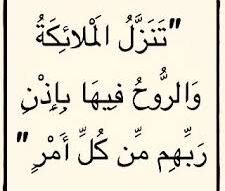 "تَنَزَّلُ الْمَلَائِكَةُ
وَالرُّوحُ فِيهَا بِإِذْنِ
رَبِّهِم مِّن كُلِّ أَمْرٍ"